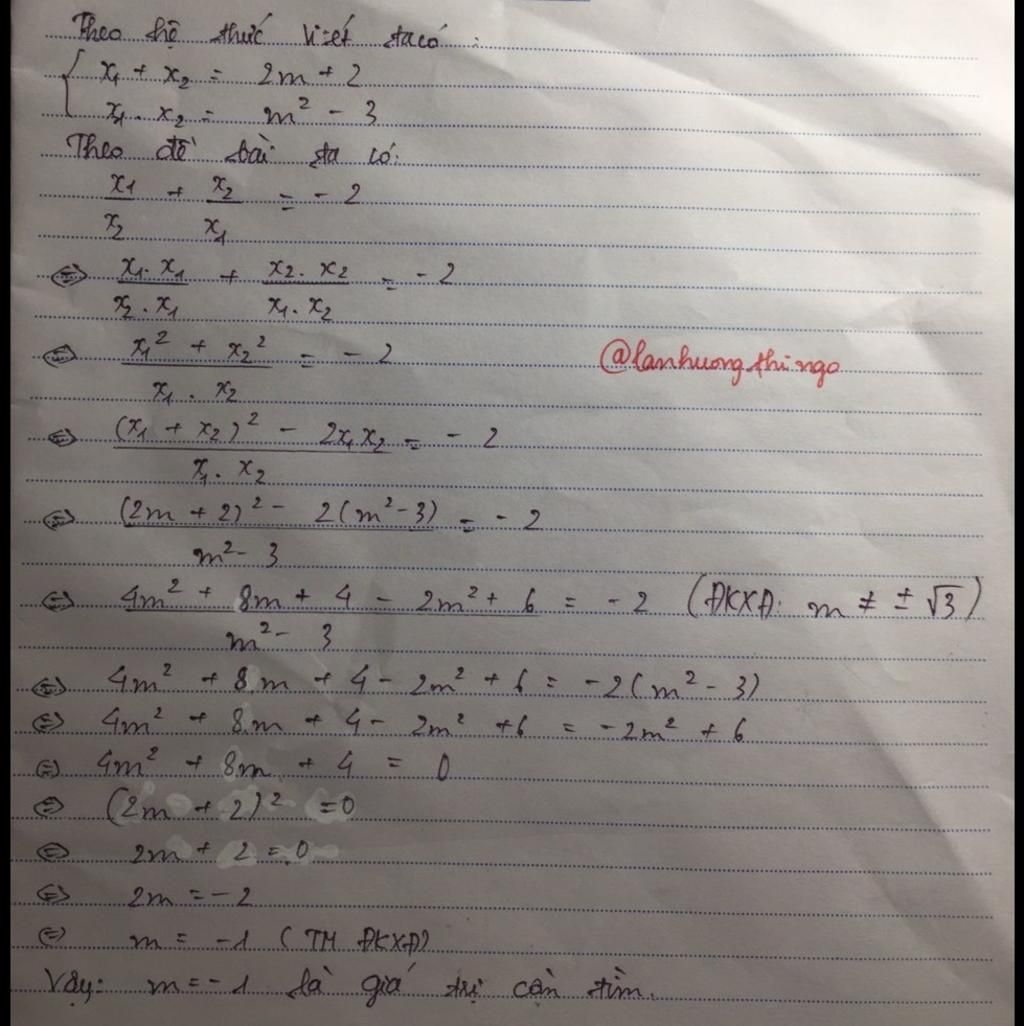 Theo hệ thức Vi-ét ta có:
{ x₁ + x₂ = 2m + 2
x₁ . x₂ = m² - 3
Theo đề bài ta có:
x₁/x₂ + x₂/x₁ = - 2
⇔ x₁. x₁/x₂ . x₁ + x₂ . x₂/x₁ . x₂ = - 2
⇔ x₁² + x₂²/x₁ . x₂ = - 2
@lanhuongthingo
⇔ (x₁ + x₂)² - 2x₁x₂/x₁ . x₂ = - 2
⇔ (2m + 2)² - 2(m² - 3)/m² - 3 = - 2
⇔ 4m² + 8m + 4 - 2m² + 6/m² - 3 = - 2 (ĐKXĐ: m ≠ ± √3)
⇔ 4m² + 8m + 4 - 2m² + 6 = -2(m² - 3)
⇔ 4m² + 8m + 4 - 2m² + 6 = - 2m² + 6
⇔ 4m² + 8m + 4 = 0
⇔ (2m + 2)² = 0
⇔ 2m + 2 = 0
⇔ 2m = - 2
⇔ m = - 1 (TM ĐKXĐ)
Vậy: m = - 1 là giá trị cần tìm.